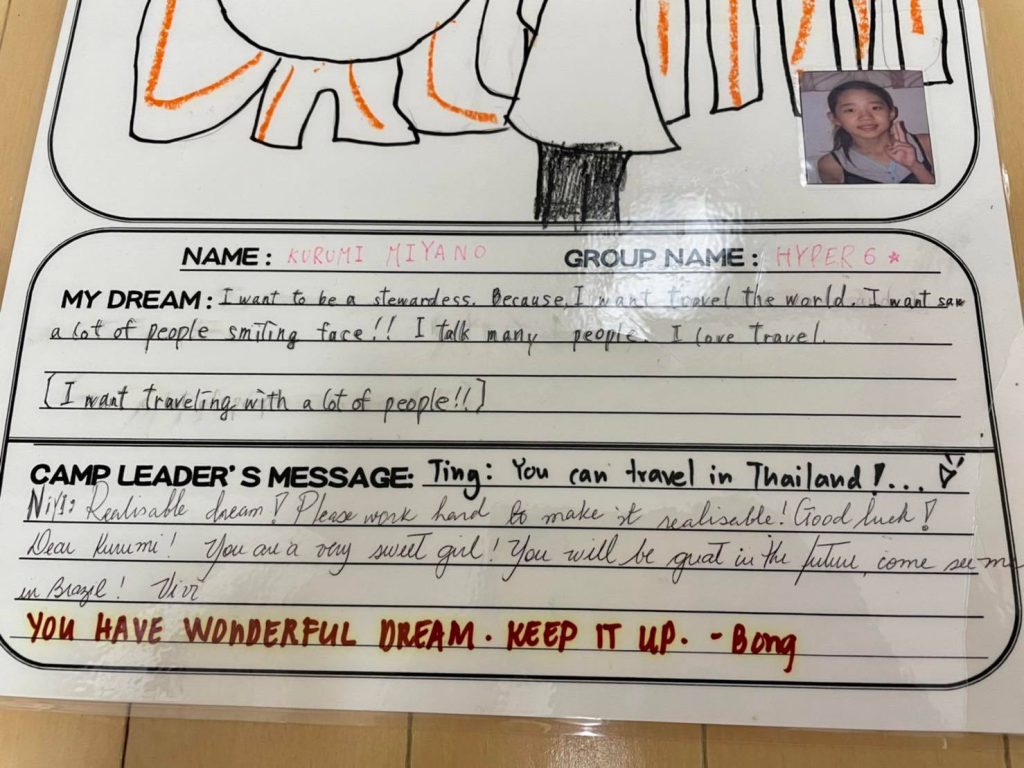 NAME: KURUMI MIYANO GROUP NAME: HYPER 6 ☆
MY DREAM: I want to be a stewardess. Because, I want travel the world. I want saw
a lot of people smiling face!! I talk many people. I love travel.
[I want traveling with a lot of people!!]
CAMP LEADER'S MESSAGE: Ting: You can travel in Thailand!...
Realisable dream! Please work hard to make it realisable! Good luck!
Dear Kurumi! You are a very sweet girl! You will be great in the future, come see me
in Brazil! Vivi
YOU HAVE WONDERFUL DREAM. KEEP IT UP. - Bong